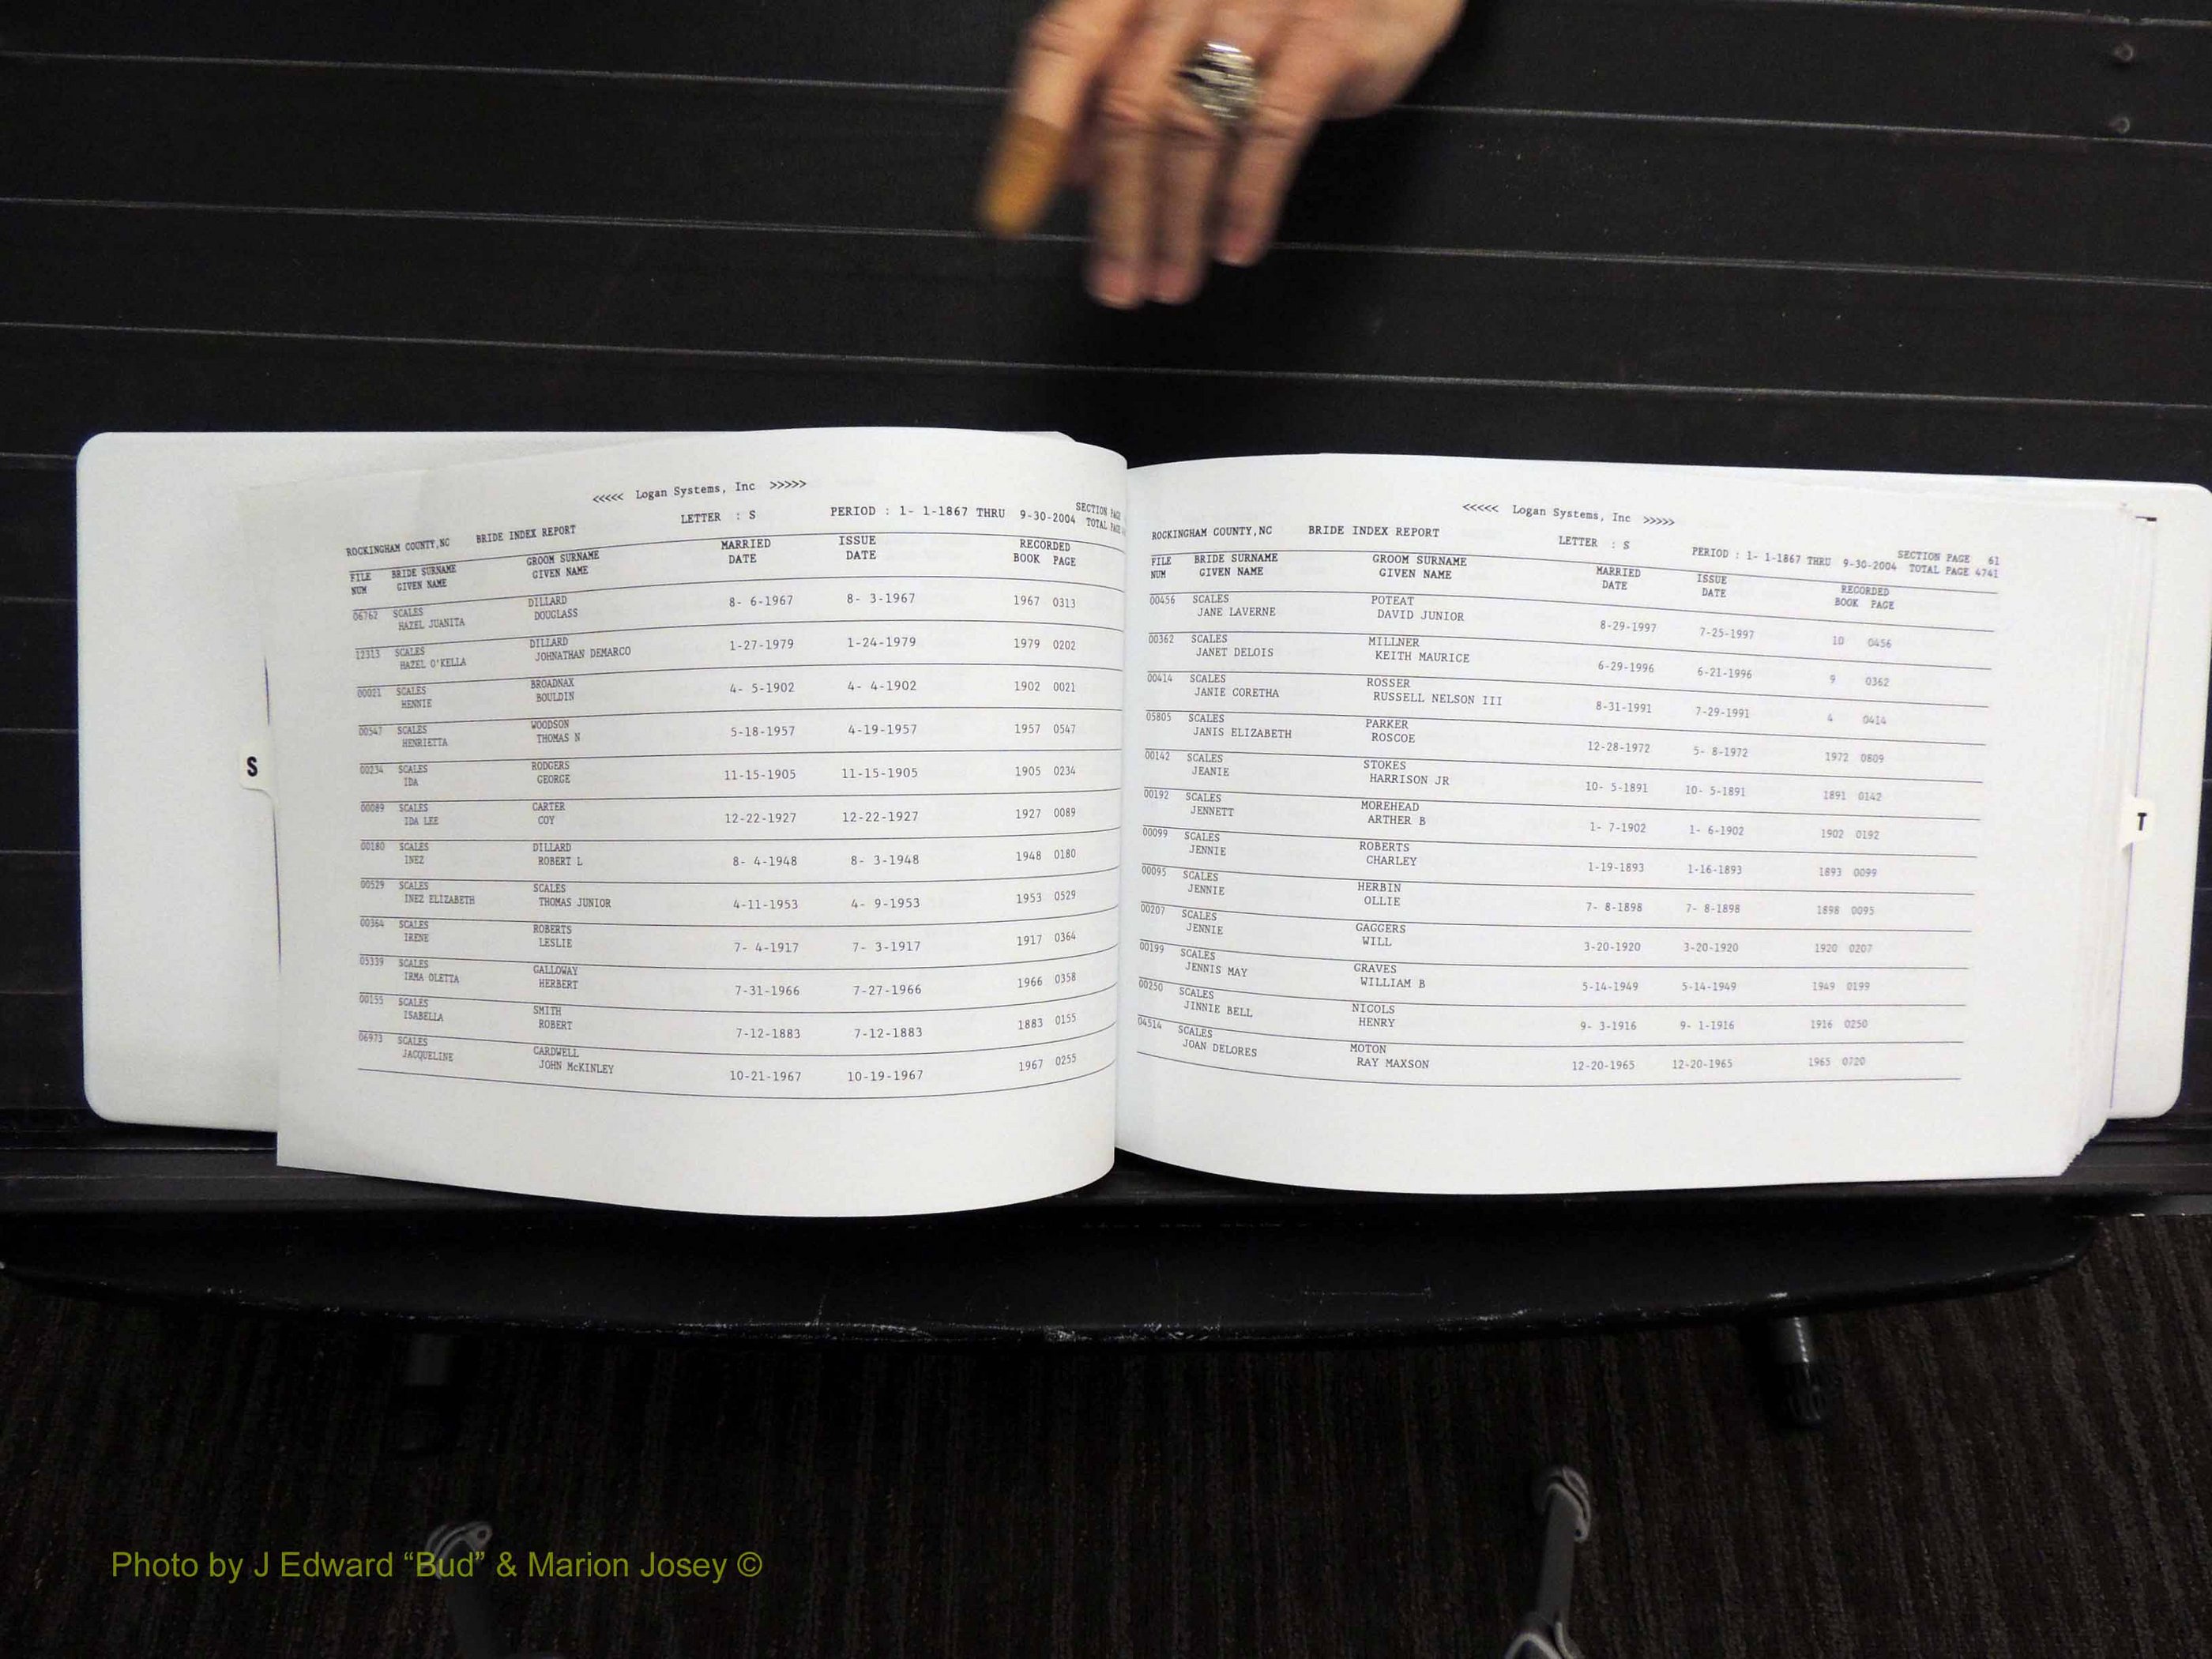 <<<<< Logan Systems, Inc >>>>>
ROCKINGHAM COUNTY,NC BRIDE INDEX REPORT LETTER : S PERIOD : 1- 1-1867 THRU 9-30-2004 SECTION PAGE
TOTAL PAGE
FILE BRIDE SURNAME GROOM SURNAME MARRIED ISSUE RECORDED
NUM GIVEN NAME GIVEN NAME DATE DATE BOOK PAGE
06762 SCALES DILLARD 8- 6-1967 8- 3-1967 1967 0313
HAZEL JUANITA DOUGLASS
12313 SCALES DILLARD 1-27-1979 1-24-1979 1979 0202
HAZEL O'KELLA JOHNATHAN DEMARCO
00021 SCALES BROADNAX 4- 5-1902 4- 4-1902 1902 0021
HENNIE BOULDIN
00547 SCALES WOODSON 5-18-1957 4-19-1957 1957 0547
HENRIETTA THOMAS N
00234 SCALES RODGERS 11-15-1905 11-15-1905 1905 0234
IDA GEORGE
00089 SCALES CARTER 12-22-1927 12-22-1927 1927 0089
IDA LEE COY
00180 SCALES DILLARD 8- 4-1948 8- 3-1948 1948 0180
INEZ ROBERT L
00529 SCALES SCALES 4-11-1953 4- 9-1953 1953 0529
INEZ ELIZABETH THOMAS JUNIOR
00364 SCALES ROBERTS 7- 4-1917 7- 3-1917 1917 0364
IRENE LESLIE
05339 SCALES GALLOWAY 7-31-1966 7-27-1966 1966 0358
IRMA OLETTA HERBERT
00155 SCALES SMITH 7-12-1883 7-12-1883 1883 0155
ISABELLA ROBERT
06973 SCALES CARDWELL 10-21-1967 10-19-1967 1967 0255
JACQUELINE JOHN McKINLEY
S
<<<<< Logan Systems, Inc >>>>>
ROCKINGHAM COUNTY,NC BRIDE INDEX REPORT LETTER : S PERIOD : 1- 1-1867 THRU 9-30-2004 SECTION PAGE 61
TOTAL PAGE 4741
FILE BRIDE SURNAME GROOM SURNAME MARRIED ISSUE RECORDED
NUM GIVEN NAME GIVEN NAME DATE DATE BOOK PAGE
00456 SCALES POTEAT 8-29-1997 7-25-1997 10 0456
JANE LAVERNE DAVID JUNIOR
00362 SCALES MILLNER 6-29-1996 6-21-1996 9 0362
JANET DELOIS KEITH MAURICE
00414 SCALES ROSSER 8-31-1991 7-29-1991 4 0414
JANIE CORETHA RUSSELL NELSON III
05805 SCALES PARKER 12-28-1972 5- 8-1972 1972 0809
JANIS ELIZABETH ROSCOE
00142 SCALES STOKES 10- 5-1891 10- 5-1891 1891 0142
JEANIE HARRISON JR
00192 SCALES MOREHEAD 1- 7-1902 1- 6-1902 1902 0192
JENNETT ARTHER B
00099 SCALES ROBERTS 1-19-1893 1-16-1893 1893 0099
JENNIE CHARLEY
00095 SCALES HERBIN 7- 8-1898 7- 8-1898 1898 0095
JENNIE OLLIE
00207 SCALES GAGGERS 3-20-1920 3-20-1920 1920 0207
JENNIE WILL
00199 SCALES GRAVES 5-14-1949 5-14-1949 1949 0199
JENNIS MAY WILLIAM B
00250 SCALES NICOLS 9- 3-1916 9- 1-1916 1916 0250
JINNIE BELL HENRY
04514 SCALES MOTON 12-20-1965 12-20-1965 1965 0720
JOAN DELORES RAY MAXSON
T
Photo by J Edward “Bud” & Marion Josey ©